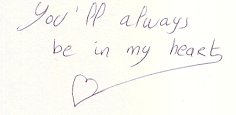 You'll always
be in my heart